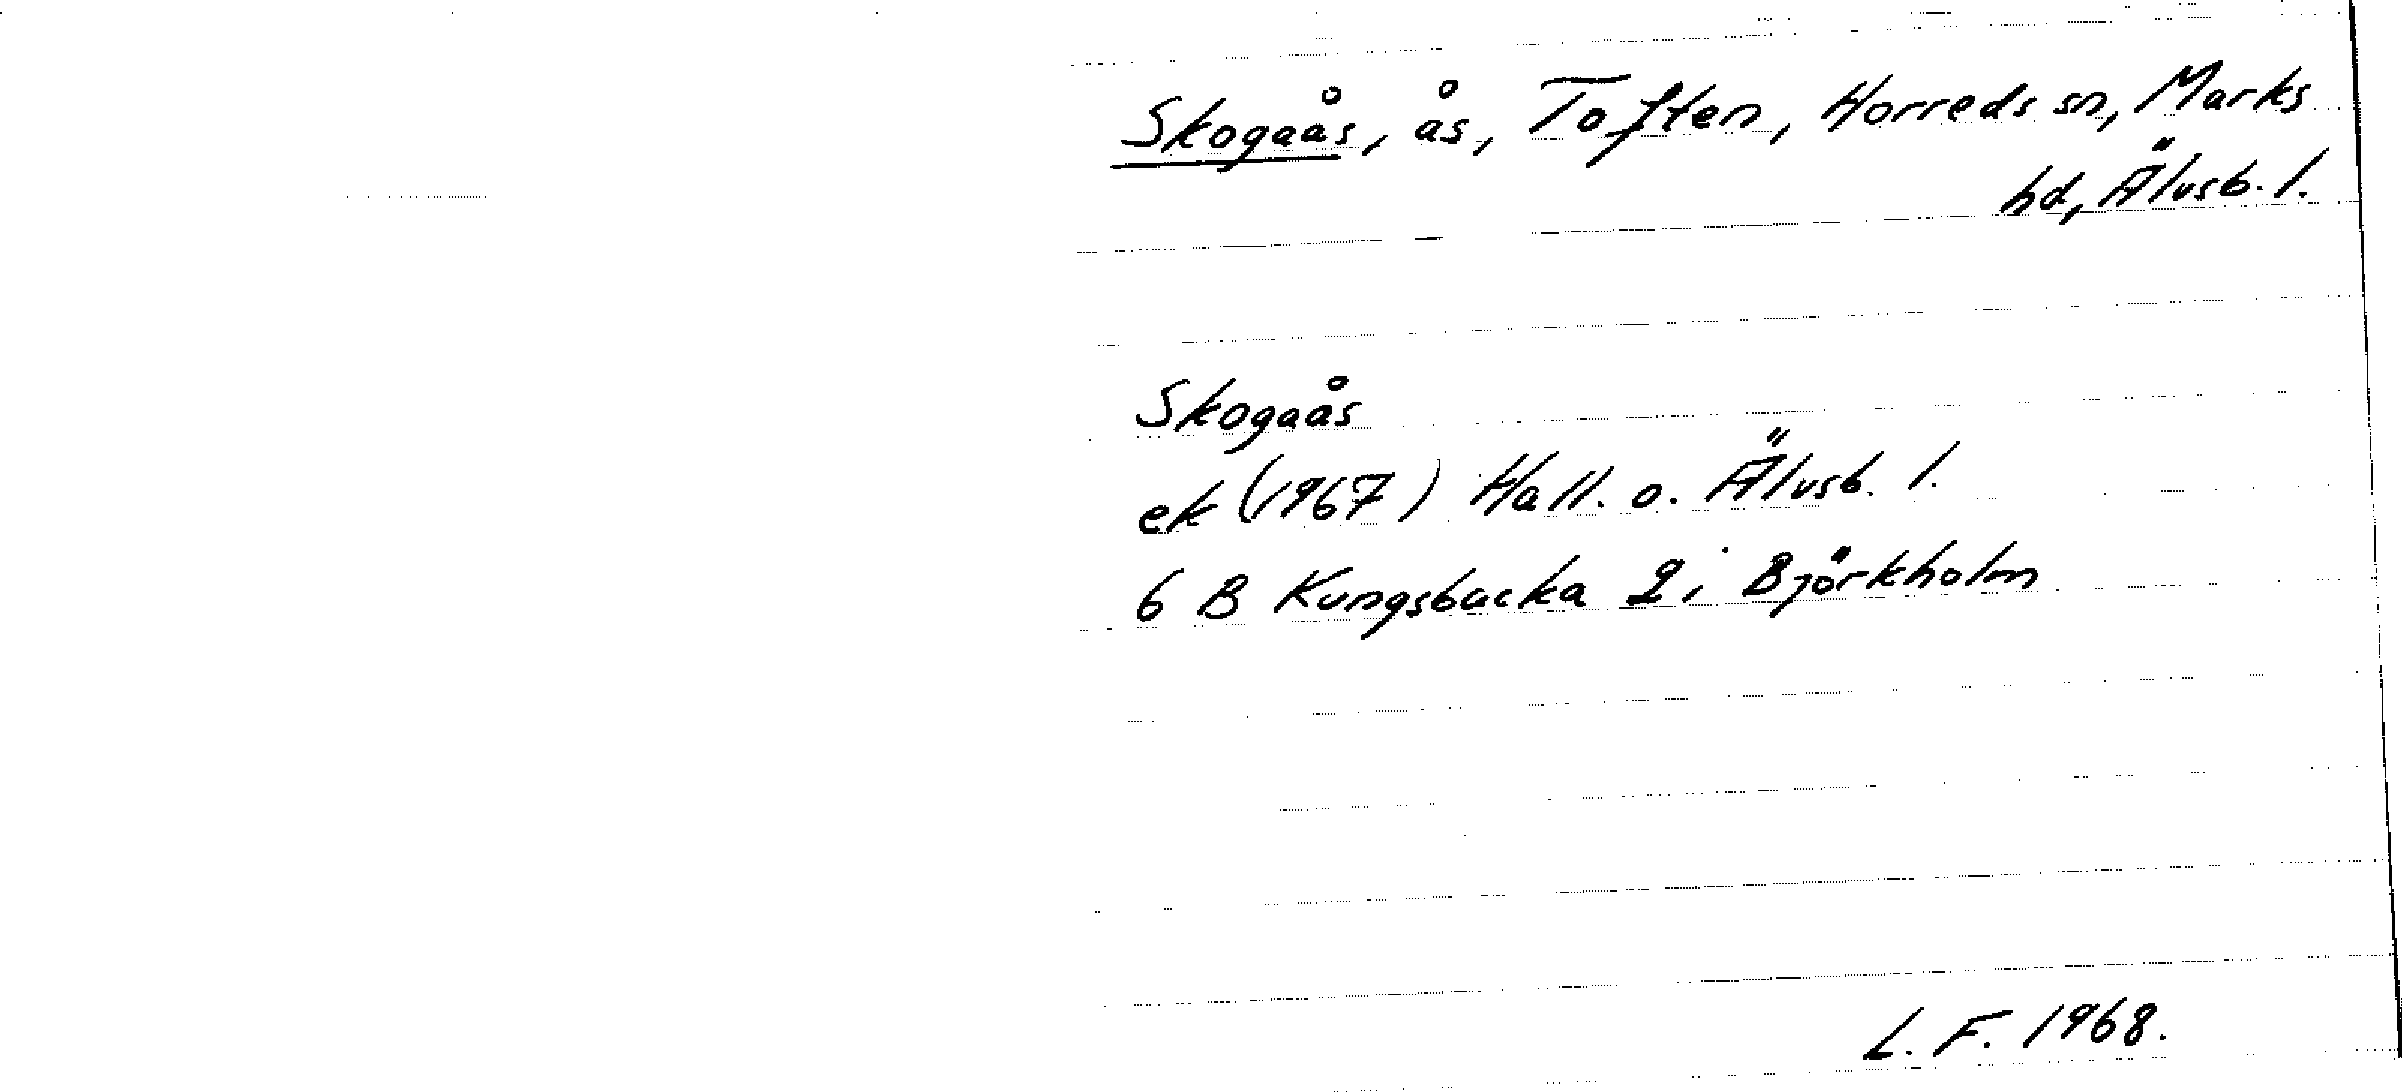 Skogaås, ås, Toften, Horreds sn, Marks
hd, Älvsb. l.
Skogaås
ek (1967) Hall. o. Älvsb. l.
6 B Kungsbacka 2 i Björkholm
L. F. 1968.